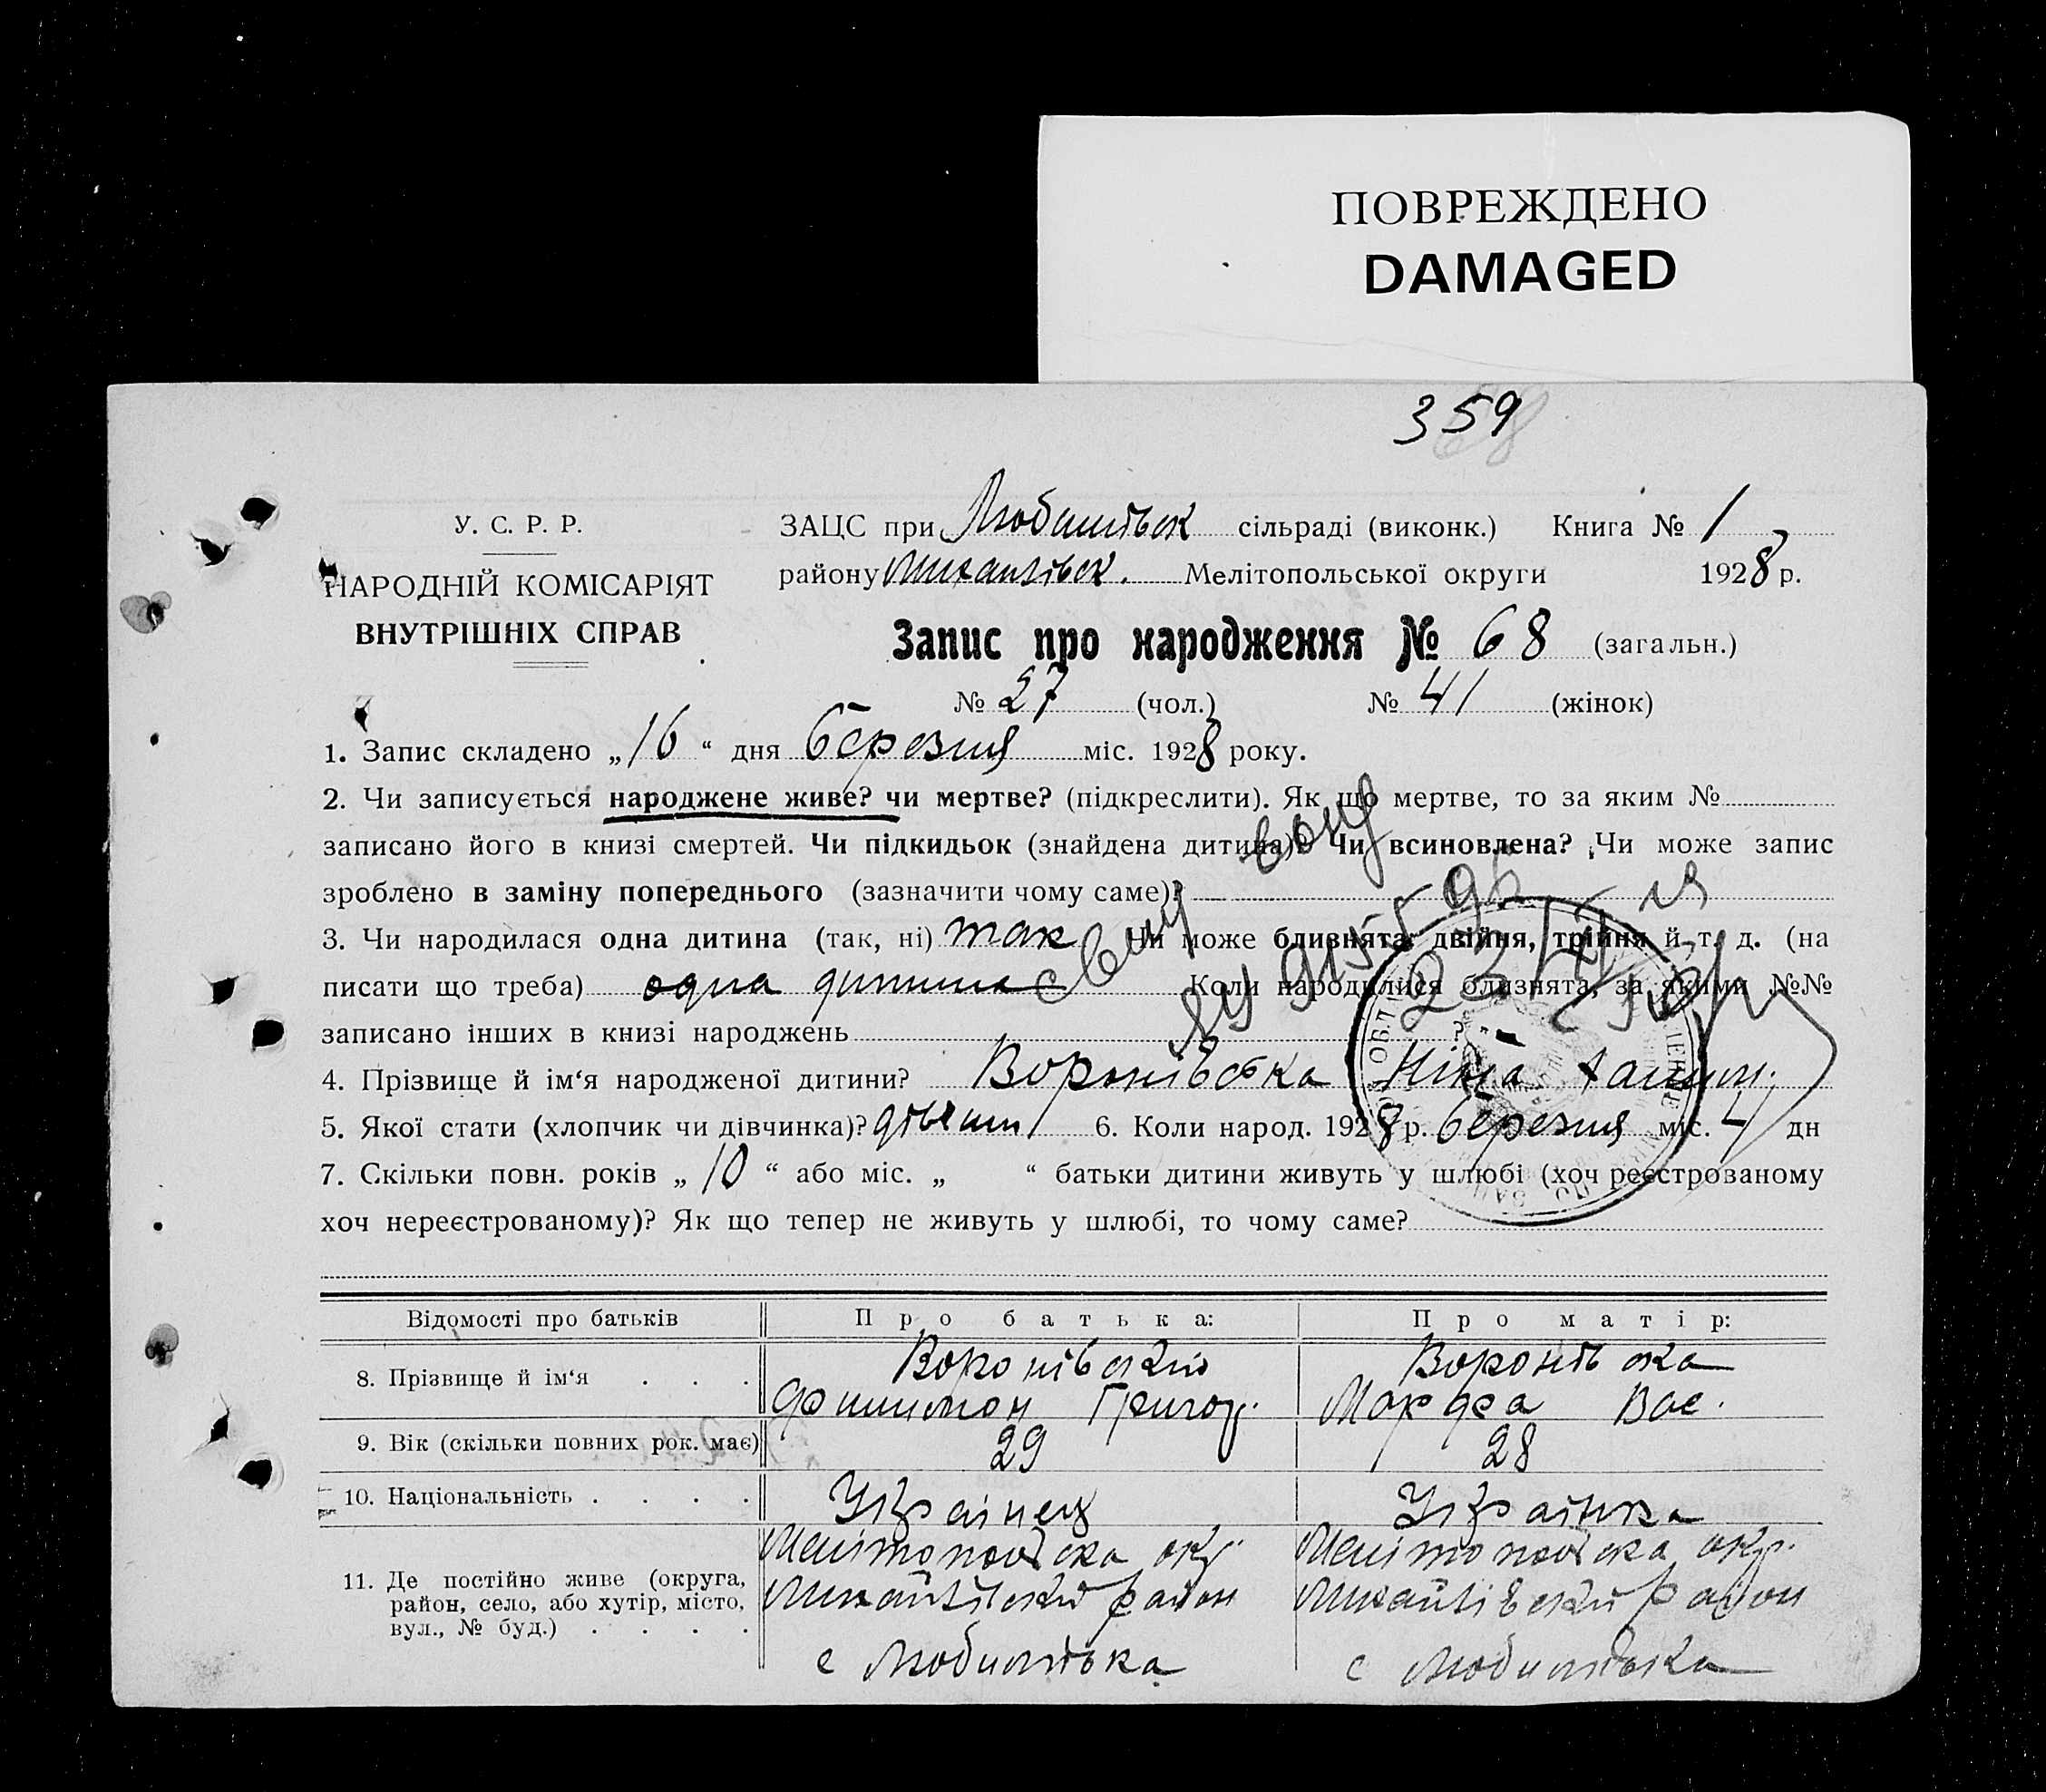 ПОВРЕЖДЕНО
DAMAGED
359
У. С. Р. Р.
НАРОДНІЙ КОМІСАРІЯТ
ВНУТРІШНІХ СПРАВ
ЗАЦС при Любимівск сільраді (виконк.) Книга № 1
району Михайлівск. Мелітопольської округи 1928 р.
Запис про народження № 68 (загальн.)
№ 27 (чол.) № 41 (жінок)
1. Запис складено „16“ дня березня міс. 1928 року.
2. Чи записується народжене живе? чи мертве? (підкреслити). Як що мертве, то за яким №
записано його в книзі смертей. Чи підкидьок (знайдена дитина)? Чи всиновлена? Чи може запис
зроблено в заміну попереднього (зазначити чому саме)?
3. Чи народилася одна дитина (так, ні) так Чи може близнята: двійня, трійня й т. д. (на
писати що треба) одна дитина Коли народилися близнята, за якими №№
записано інших в книзі народжень ?
4. Прізвище й ім‘я народженої дитини? Воронівська Ніна
5. Якої стати (хлопчик чи дівчинка)? 6. Коли народ. 1928 р. березня міс. 4 дн
7. Скільки повн. років „10“ або міс. „ “ батьки дитини живуть у шлюбі (хоч реєстрованому
хоч нереєстрованому)? Як що тепер не живуть у шлюбі, то чому саме?
Відомості про батьків Про батька: Про матір:
8. Прізвище й ім‘я . . . Воронівский Воронівска
Филимон Григор. Марфа Вас.
9. Вік (скільки повних рок. має) 29 28
10. Національність . . . . Українец Українка
11. Де постійно живе (округа,
район, село, або хутір, місто,
вул., № буд.) . . . .
Мелітопольска окр. Мелітопольска окр.
Михайлівский район Михайлівский район
с Любимівка с Любимівка